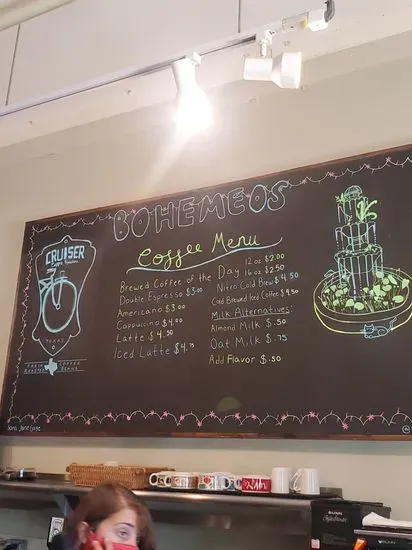 BOHEMEOS
Coffee Menu
CRUISER
TEXAS
FRESH COFFEE
ROASTED BEANS
Brewed Coffee of the Day 12 oz $2.00
16 oz $2.50
Double Espresso $3.00
Americano $3.00
Cappuccino $4.00
Latte $4.50
Iced Latte $4.75
Nitro Cold Brew $4.50
Cold Brewed Iced Coffee $4.50
Milk Alternatives:
Almond Milk $.50
Oat Milk $.75
Add Flavor $.50
BUNN
BUNN